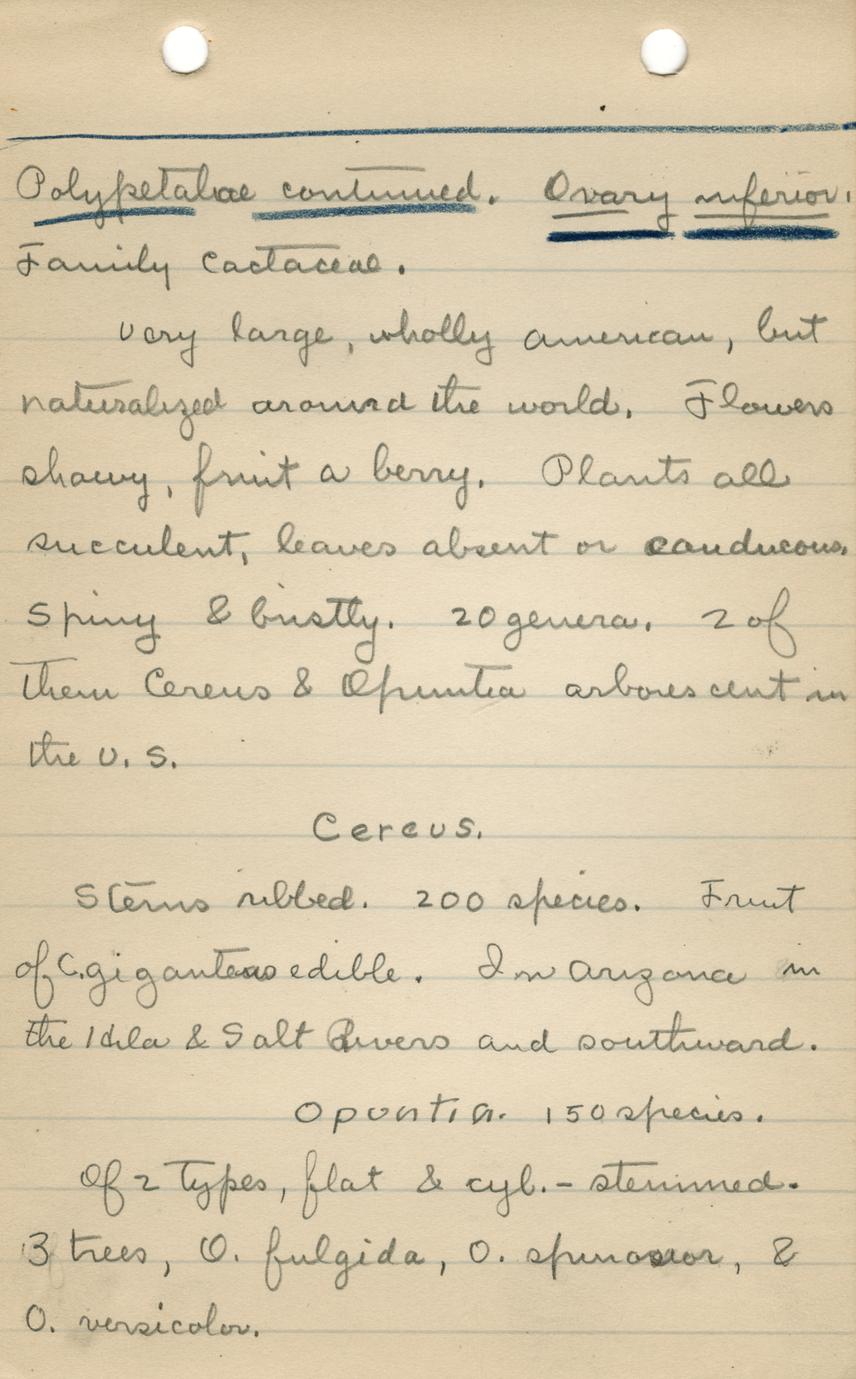 Polypetalae continued. Ovary inferior.
Family Cactaceae.
Very large, wholly american, but
naturalized around the world. Flowers
showy, fruit a berry. Plants all
succulent, leaves absent or
Spiny & bristly. 20 genera. 2 of
them Cereus & Opuntia arborescent in
the U.S.
Cereus.
Stems ribbed. 200 species. Fruit
of C. giganteus edible. In Arizona in
the & Salt Rivers and southward.
Opuntia. 150 species.
Of 2 types, flat & cyl. - stemmed.
3 trees, O. fulgida, O. spinosior, &
O. versicolor.